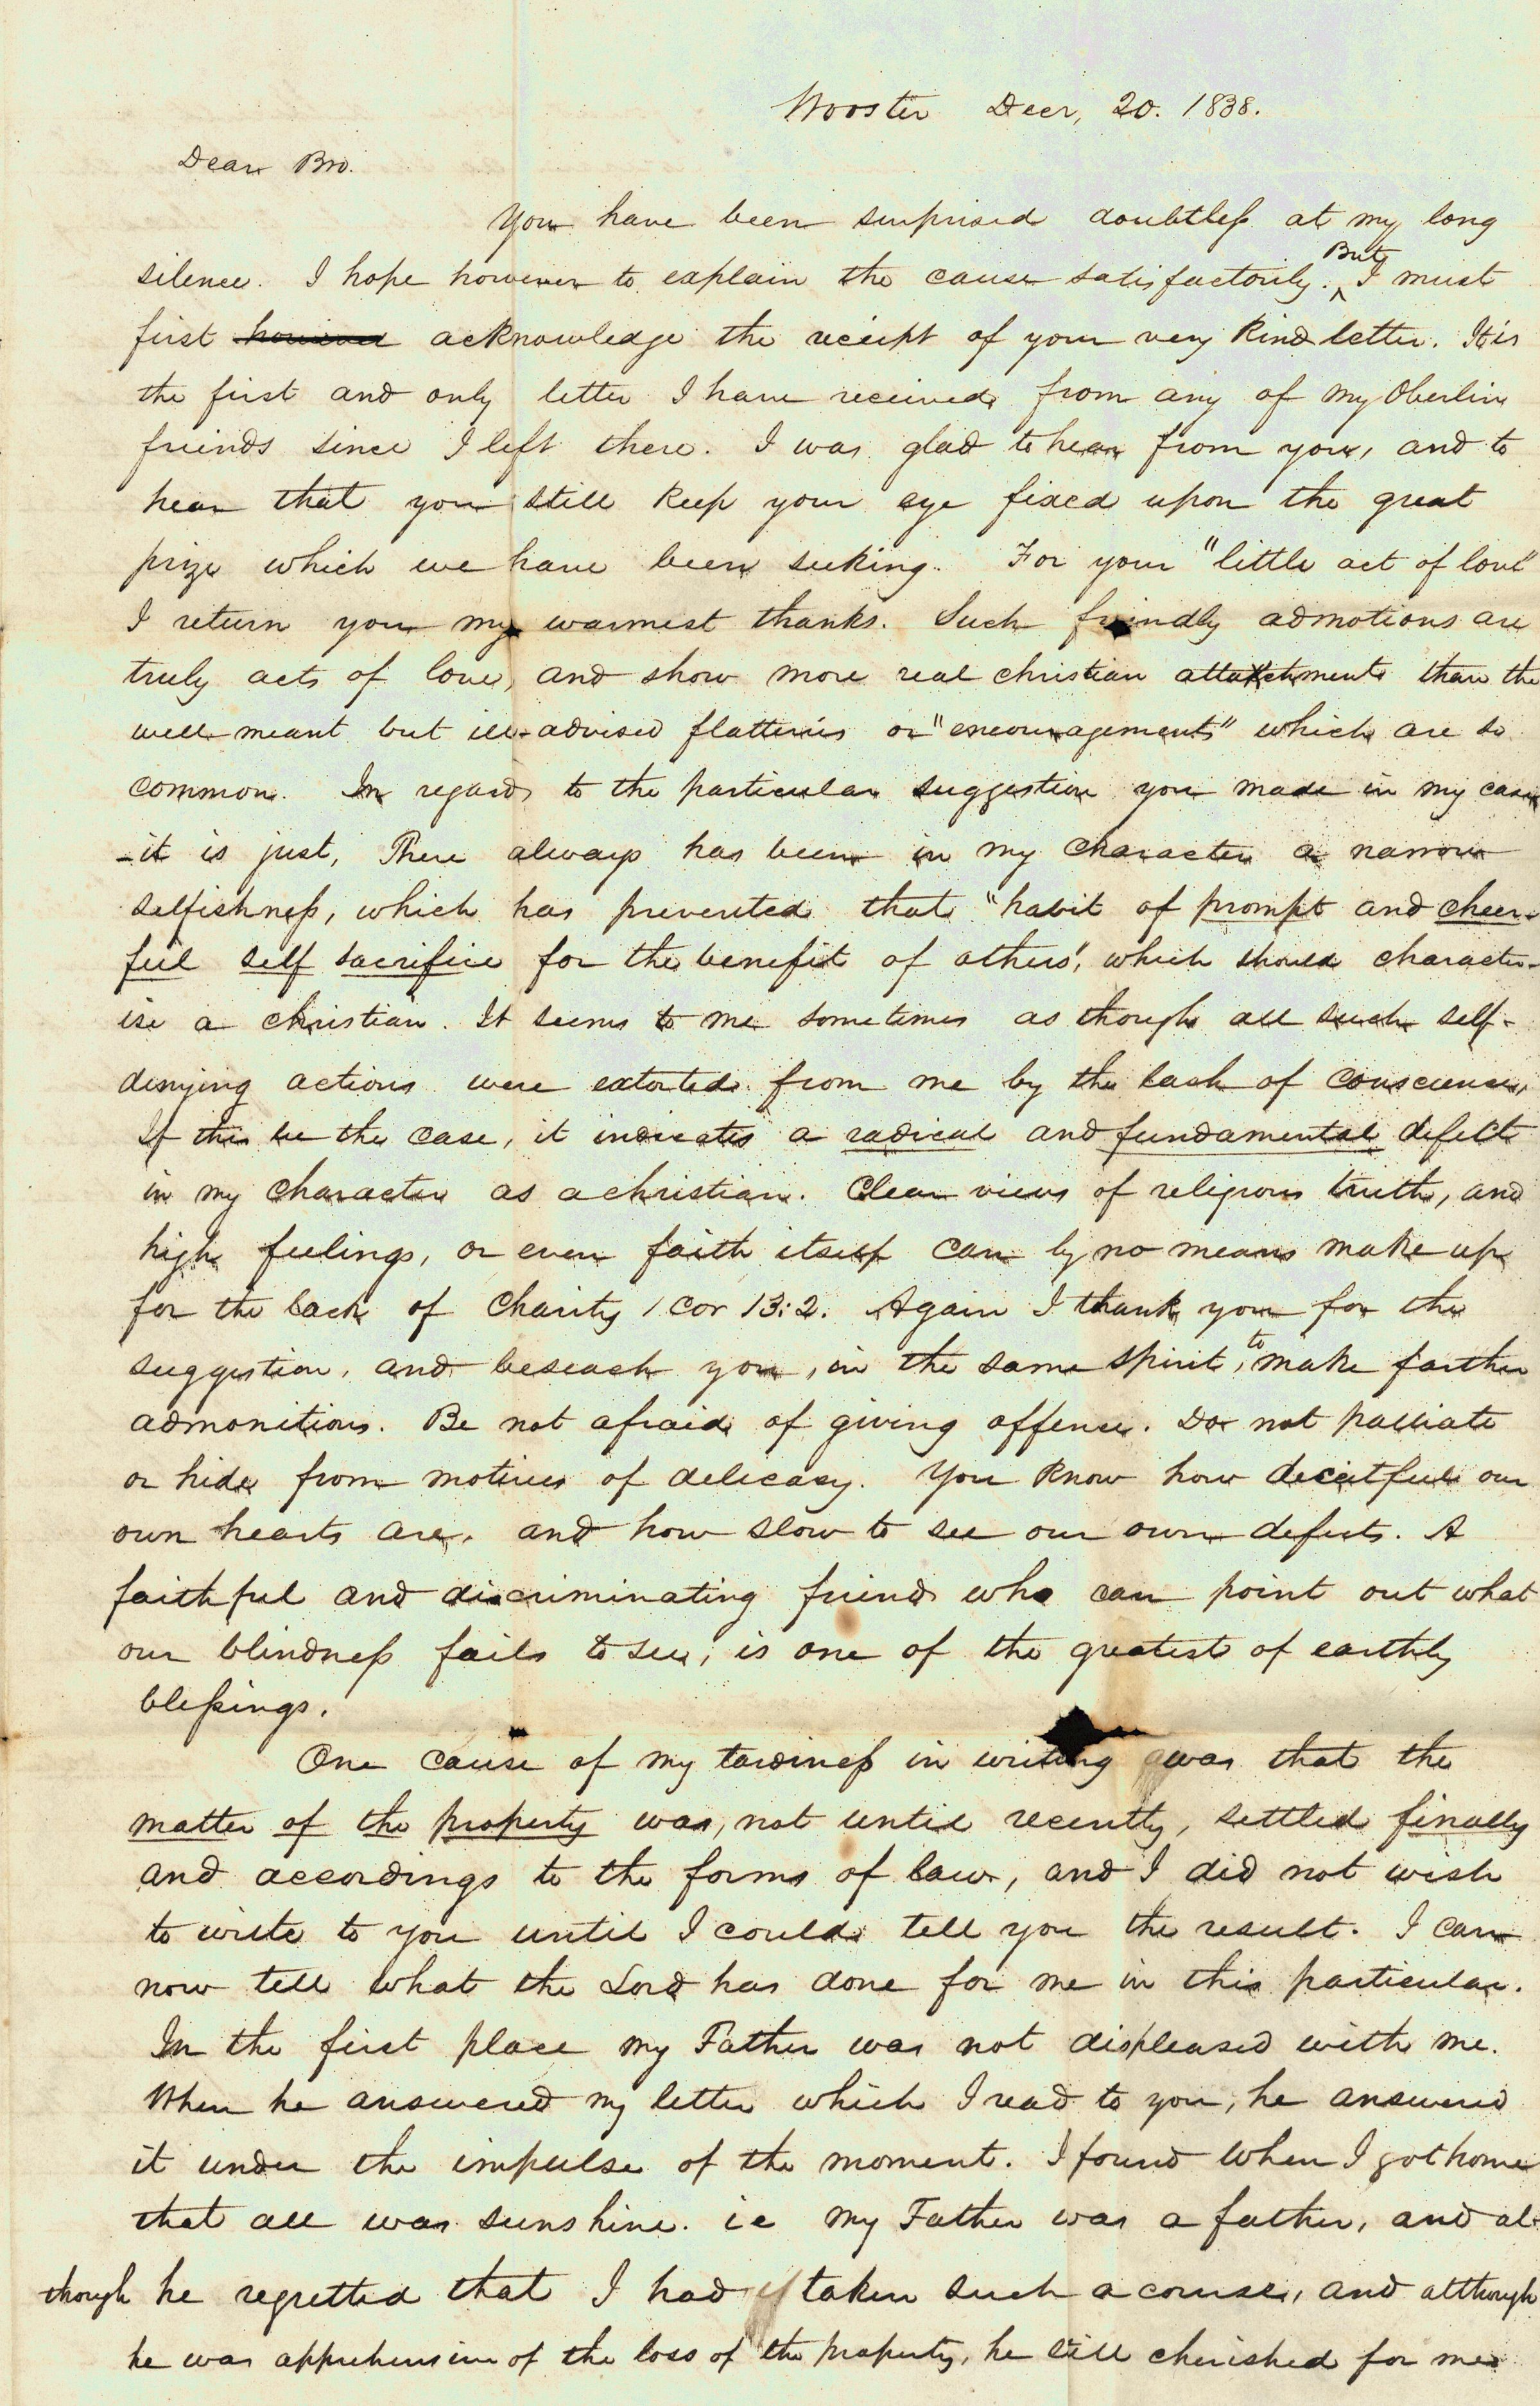 Wooster Decr, 20. 1838.
Dear Bro.
You have been surprised doubtless at my long
silence. I hope however to explain the cause satisfactorily. But I must
first however acknowledge the reciept of your very kind letter. It is
the first and only letter I have received from any of my Oberlin
friends since I left there. I was glad to hear from you, and to
hear that you still keep your eye fixed upon the great
prize which we have been seeking. For your "little act of love"
I return you my warmest thanks. Such friendly admotions are
truly acts of love, and show more real christian attatchment than the
well-meant but ill-advised flatteries or "encouragements" which are so
common. In regard to the particular suggestion you made in my case
- it is just, There always has been in my character a narrow
selfishness, which has prevented that "habit of prompt and cheer-
ful self sacrifice for the benefit of others", which should character-
ise a christian. It seems to me sometimes as though all such self-
denying actions were extorted from me by the lash of conscience,
If this be the case, it indicates a radical and fundamental defect
in my character as a christian. Clear views of religious truth, and
high feelings, or even faith itself can by no means make up
for the lack of Charity 1 Cor 13:2. Again I thank you for the
suggestion, and beseach you, in the same spirit, to make farther
admonitions. Be not afraid of giving offence. Do not palliate
or hide from motives of delicacy. You know how deceitful our
own hearts are, and how slow to see our own defects. A
faithful and discriminating friend who can point out what
our blindness fails to see, is one of the greatest of earthly
blessings.
One cause of my tardiness in writing was that the
matter of the property was, not until recently, settled finally
and accordings to the forms of law, and I did not wish
to write to you until I could tell you the result. I can
now tell what the Lord has done for me in this particular.
In the first place my Father was not displeased with me.
When he answered my letter which I read to you, he answered
it under the impulse of the moment. I found when I got home
that all was sunshine. ie my Father was a father, and al-
though he regretted that I had taken such a course, and although
he was apprehensive of the loss of the property, he still cherished for me